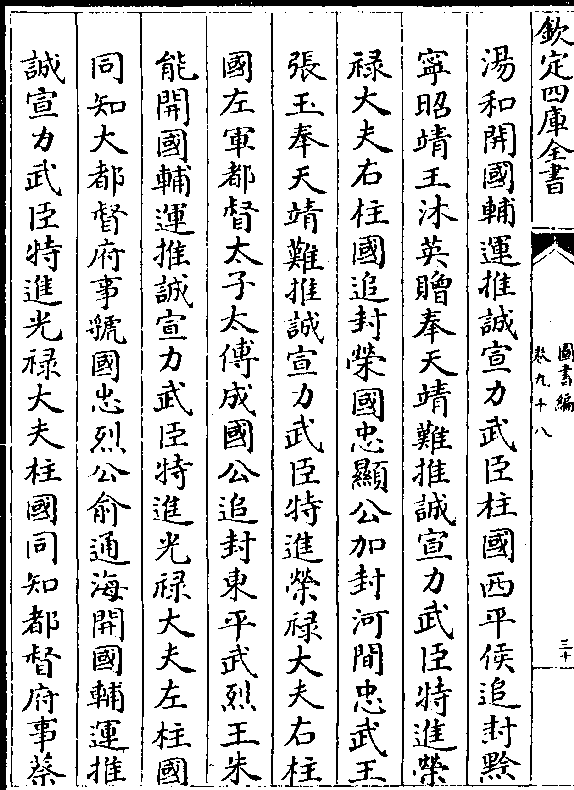 欽定四庫全書
圖書編
卷九十八
三十
湯和開國輔運推誠宣力武臣柱國西平侯追封黔
寧昭靖王沐英贈奉天靖難推誠宣力武臣特進榮
祿大夫右柱國追封榮國忠顯公加封河間忠武王
張玉奉天靖難推誠宣力武臣特進榮祿大夫右柱
國左軍都督太子太傅成國公追封東平武烈王朱
能開國輔運推誠宣力武臣特進光祿大夫左柱國
同知大都督府事虢國忠烈公俞通海開國輔運推
誠宣力武臣特進光祿大夫柱國同知都督府事蔡